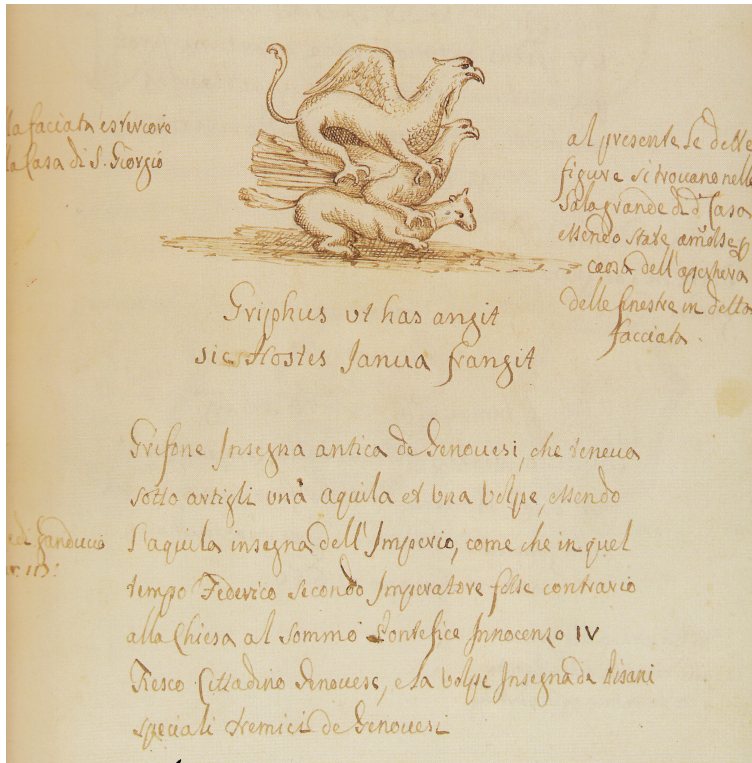 la faciata esteriore
la Casa di S. Giorgio
al presente le dette
figure si trouano nella
Sala grande di d.ª Casa
essendo state
causa dell'
delle finestre in detta
facciata.
Griphus ut has angit
sic Hostes Janua frangit
Grifone Insegna antica de Genouesi, che teneua
sotto artigli una aquila et una uolpe, essendo
l'aquila insegna dell'Imperio, come che in quel
tempo Federico secondo Imperatore fosse contrario
alla Chiesa al sommo Pontefice Innocenzo IV
Fiesco Cittadino Genouese, e la uolpe Insegna de Pisani
speciali nemici de Genouesi